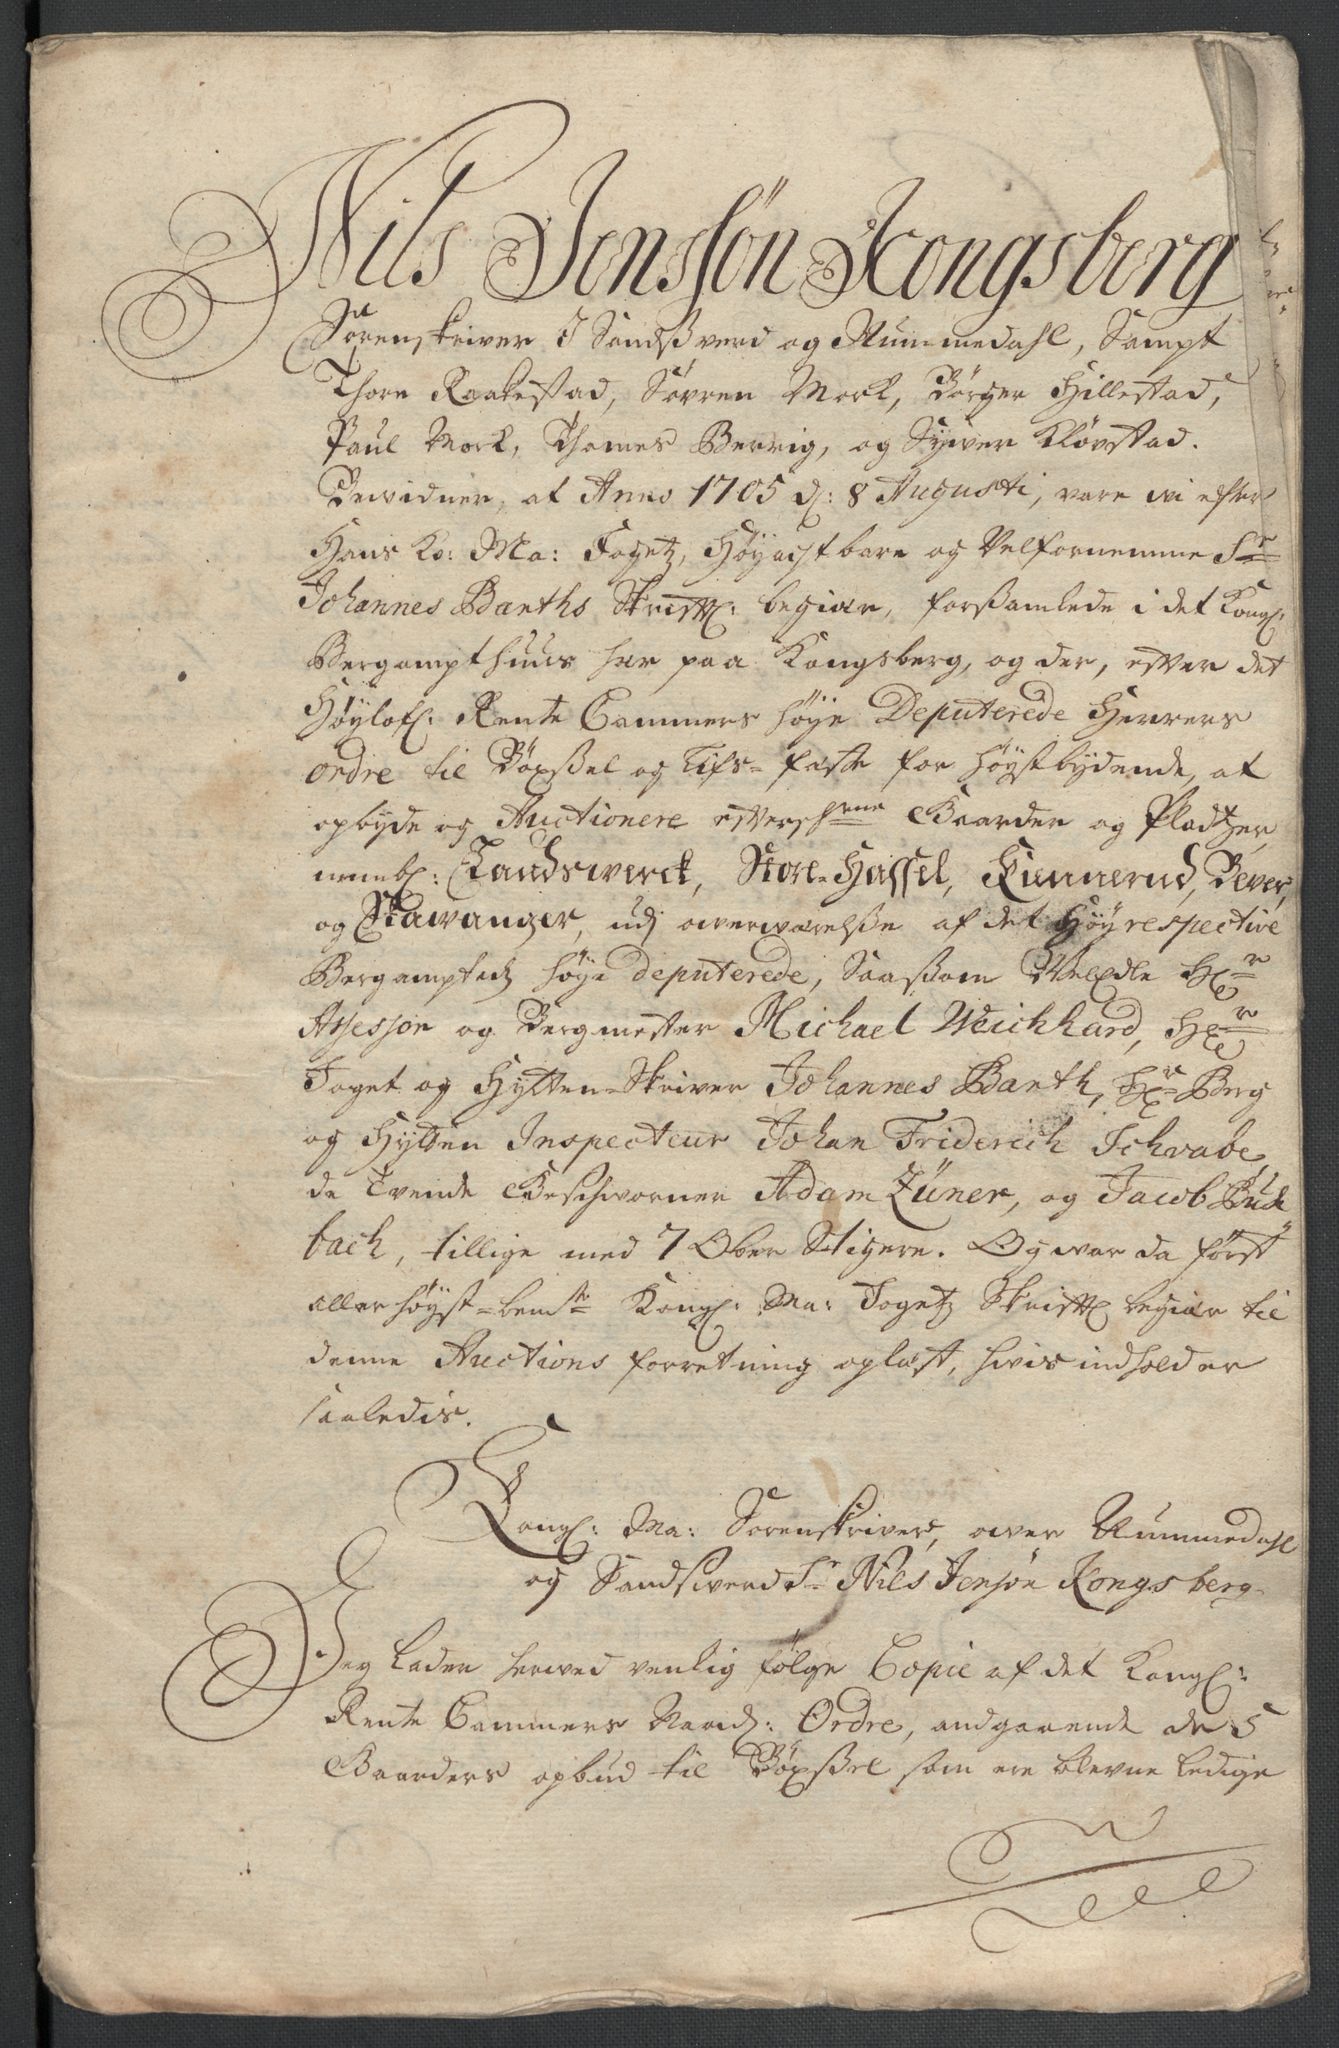 Nils Jenssøn Kongsberg
Sorenskriver I Sandsverd og Nummedahl, Sampt
Thore Raakestad, Søvren Mork, Børger Hillestad,
Paul Mork, Thomes Berrig, og Syver Kløvstad.
Bewidner, at Anno 1705 d: 8 Augusti, vare wi efter
Hans Ko: Ma: Fogetz, Høyachtbare og Velfornemme Sr
Johannes Barths Skriftl: begiær, forsamlede i det Kongl:
Bergampthuus her paa Kongsberg, og der, efter det
Høylofl: Rente Cammers høye Deputerede Herrers
ordre til Böxsel og Lifs-feste for høystbydende, at
opbyde og Auctionere efterschrne Gaarder og Pladtzer,
nembl: Laudswerck, Store-Hassel, Funnerud, Bever,
og Stawanger, udj overværelse af det Høyrespective
Bergamptedz høye deputerede, Saasom VelEdle Hr
Assessor og Bergmester Michael Weichhard, Hr
Foget og Hytten-Skriver Johannes Barth, Hr Berg
og Hytten Inspecteur Johan Friderich Schvabe,
de Tvende Geschworner Adam Züner, og Jacob Bud
bach, tillige med 7 Ober Stigere. Og war da først
aller høyst-bemte Kongl: Ma: Fogetz Skriftl begiær til
denne Auctions forretning oplæst, hvis indhold er
saaledis.
Kongl: Ma: Sorenskriver, over Nummedahl
og Sandswerd Sr Nils Jensøn Kongsberg
Jeg lader herved venlig følge Copie af det Kongl:
Rente Cammers Naad: Ordre, andgaaende de 5
Gaarders opbud til Böxsel som ere blevne ledige